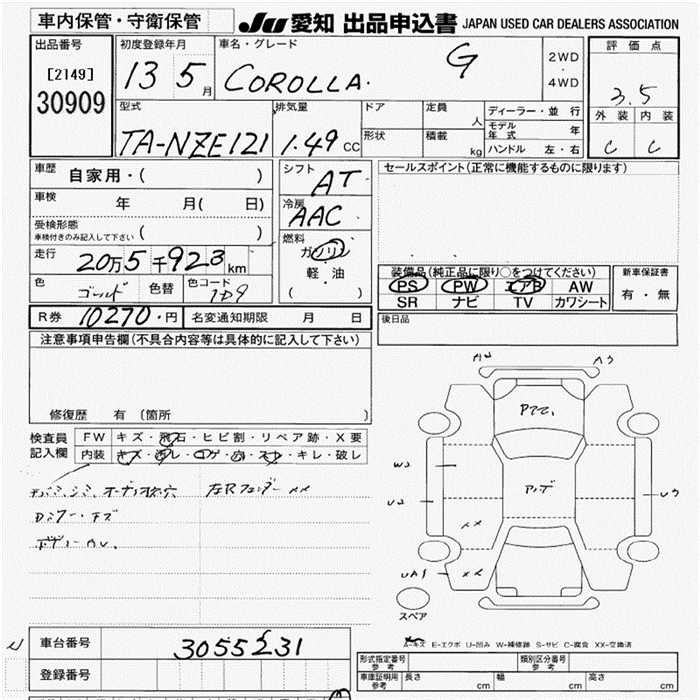 車内保管・守衛保管
JU 愛知 出品申込書 JAPAN USED CAR DEALERS ASSOCIATION
出品番号
[2149]
30909
初度登録年月
13 5月
車名・グレード
COROLLA. G
2WD
・
4WD
評価点
3.5
外装 内装
C C
型式
TA-NZE121
排気量
1.49 CC
ドア
定員
人
形状
積載
kg
ディーラー・並行
モデル年式 年
ハンドル 左・右
車歴
自家用・( )
車検
年 月( 日)
受検形態
車検付きのみ記入して下さい ( )
走行
20万5千923km
色
ゴールド
色替
色コード
シフト
AT
冷房
AAC
燃料
ガソリン
軽油
( )
セールスポイント(正常に機能するものに限ります)
装備品(純正品に限り○をつけてください)
PS PW エアB AW
SR ナビ TV カワシート
新車保証書
有・無
後日品
R券 10270・円
名変通知期限 月 日
注意事項申告欄(不具合内容等は具体的に記入して下さい)
修復歴 有 (箇所 )
検査員
記入欄
FW キズ・飛石・ヒビ割・リペア跡・X要
内装 キズ・汚レ・コゲ・穴・スレ・キレ・破レ
A2 A3
W3
U2
U3
XX
UA1 XX
スペア
A-キズ E-エクボ U-凹み W-補修跡 S-サビ C-腐食 XX-交換済
車台番号
3055231
登録番号
形式指定番号
参考
類別区分番号
参考
車庫証明用
参考
長さ cm
幅 cm
高さ cm